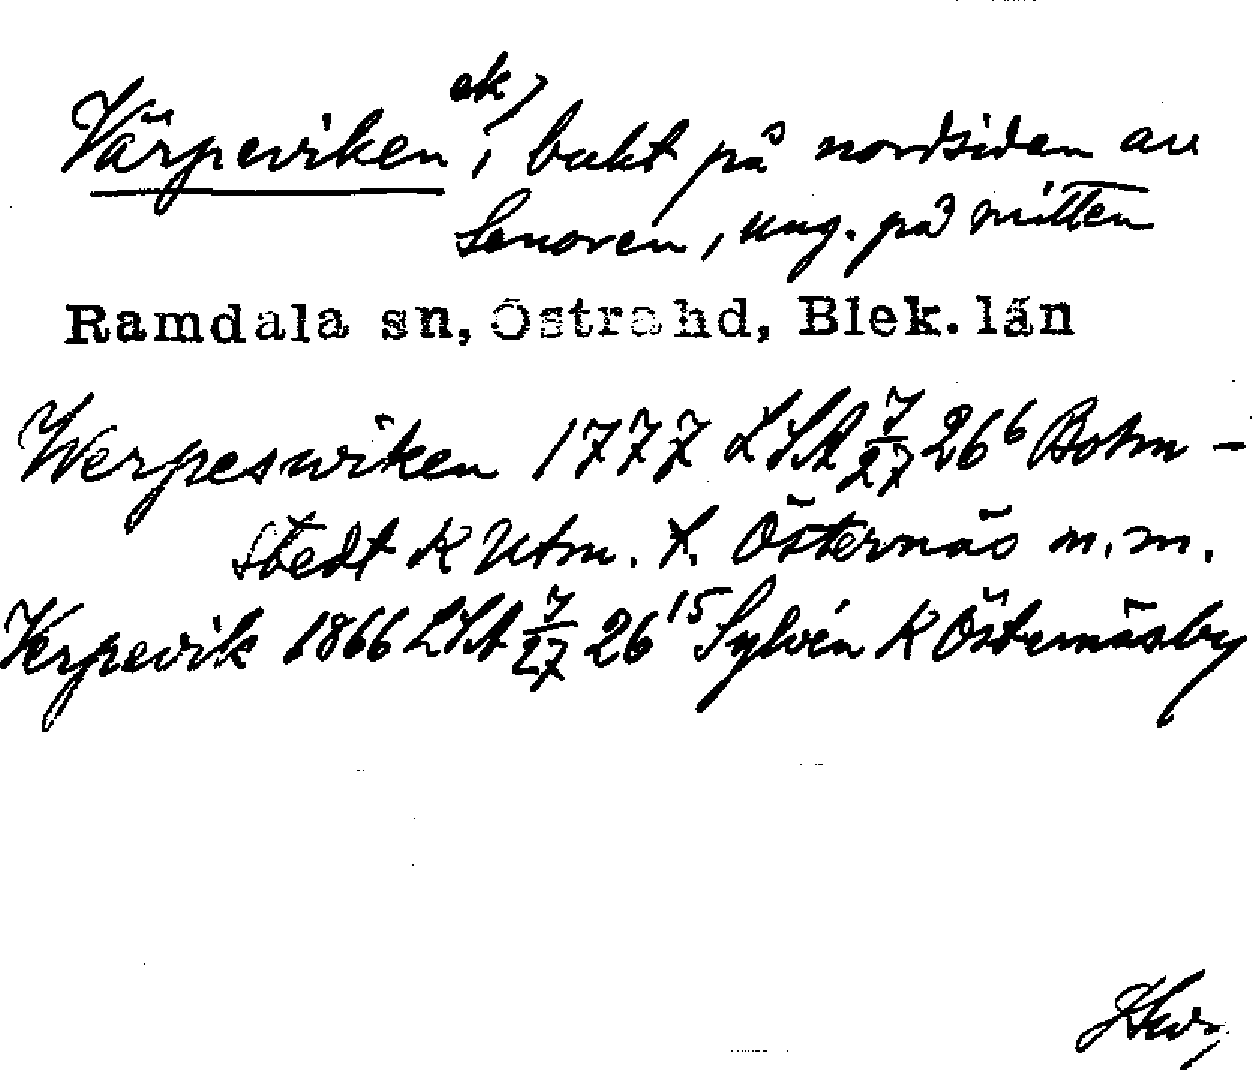 Värpeviken ek), bukt på nordsidan av
Senoren, ung. på mitten
Ramdala sn, Östra hd, Blek. län
Werpeswiken 1777 LSA 7/27 26⁶ Bohm-
stedt K Utm. t. Östernäs m.m.
Verpevik 1866 LSA 7/27 26¹⁵ Sylvén K Östernäsby